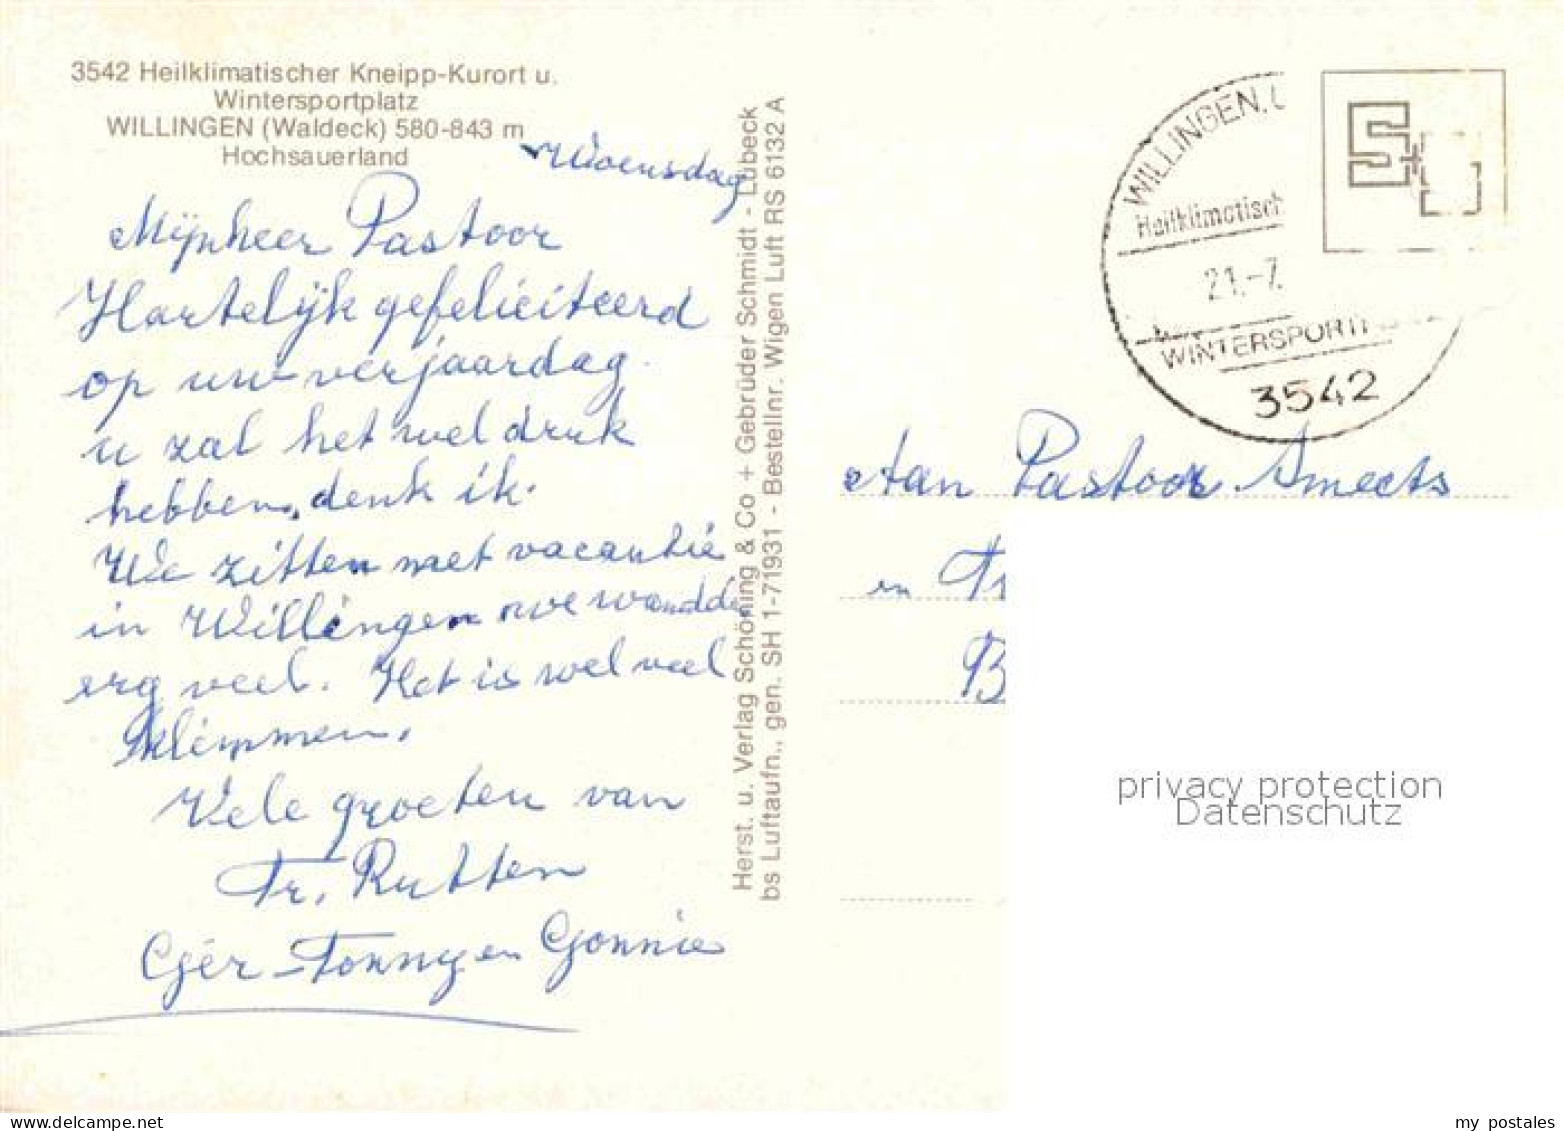 3542 Heilklimatischer Kneipp-Kurort u.
Wintersportplatz
WILLINGEN (Waldeck) 580-843 m
Hochsauerland
Woensdag
Mijnheer Pastoor
Hartelijk gefeliciteerd
op uw verjaardag.
u zal het wel druk
hebben, denk ik.
We zitten met vacantie
in Willingen we wandelen
erg veel. Het is wel veel
klimmen.
Vele groeten van
Fr. Rutten
Gér - Tonny en Gonnie
Herst. u. Verlag Schöning & Co + Gebrüder Schmidt - Lübeck
bs Luftaufn., gen. SH 1-71931 - Bestellnr. Wigen Luft RS 6132 A
WILLINGEN,
Heilklimatisch
21.-7.
WINTERSPORT
3542
S+
Aan Pastoor Smeets
en Fr
B
privacy protection
Datenschutz
my postales